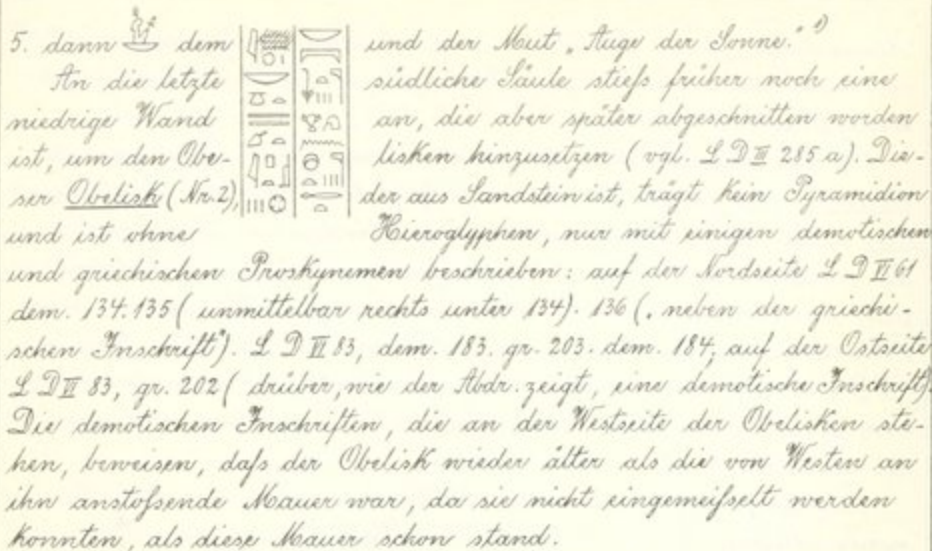 5. dann dem und der Mut „Auge der Sonne.“ 1)
An die letzte südliche Säule stieß früher noch eine
niedrige Wand an, die aber später abgeschnitten worden
ist, um den Obe- lisken hinzusetzen (vgl. L D IV 285 a). Die-
ser Obelisk (Nr. 2), der aus Sandstein ist, trägt kein Pyramidion
und ist ohne Hieroglyphen, nur mit einigen demotischen
und griechischen Proskynemen beschrieben: auf der Nordseite L D VI 61
dem. 134. 135 (unmittelbar rechts unter 134). 136 („neben der griechi-
schen Inschrift“). L D VI 83, dem. 183. gr. 203. dem. 184, auf der Ostseite
L D VI 83, gr. 202 (drüber, wie der Abdr. zeigt, eine demotische Inschrift).
Die demotischen Inschriften, die an der Westseite der Obelisken ste-
hen, beweisen, daß der Obelisk wieder älter als die von Westen an
ihn anstoßende Mauer war, da sie nicht eingemeißelt werden
konnten, als diese Mauer schon stand.